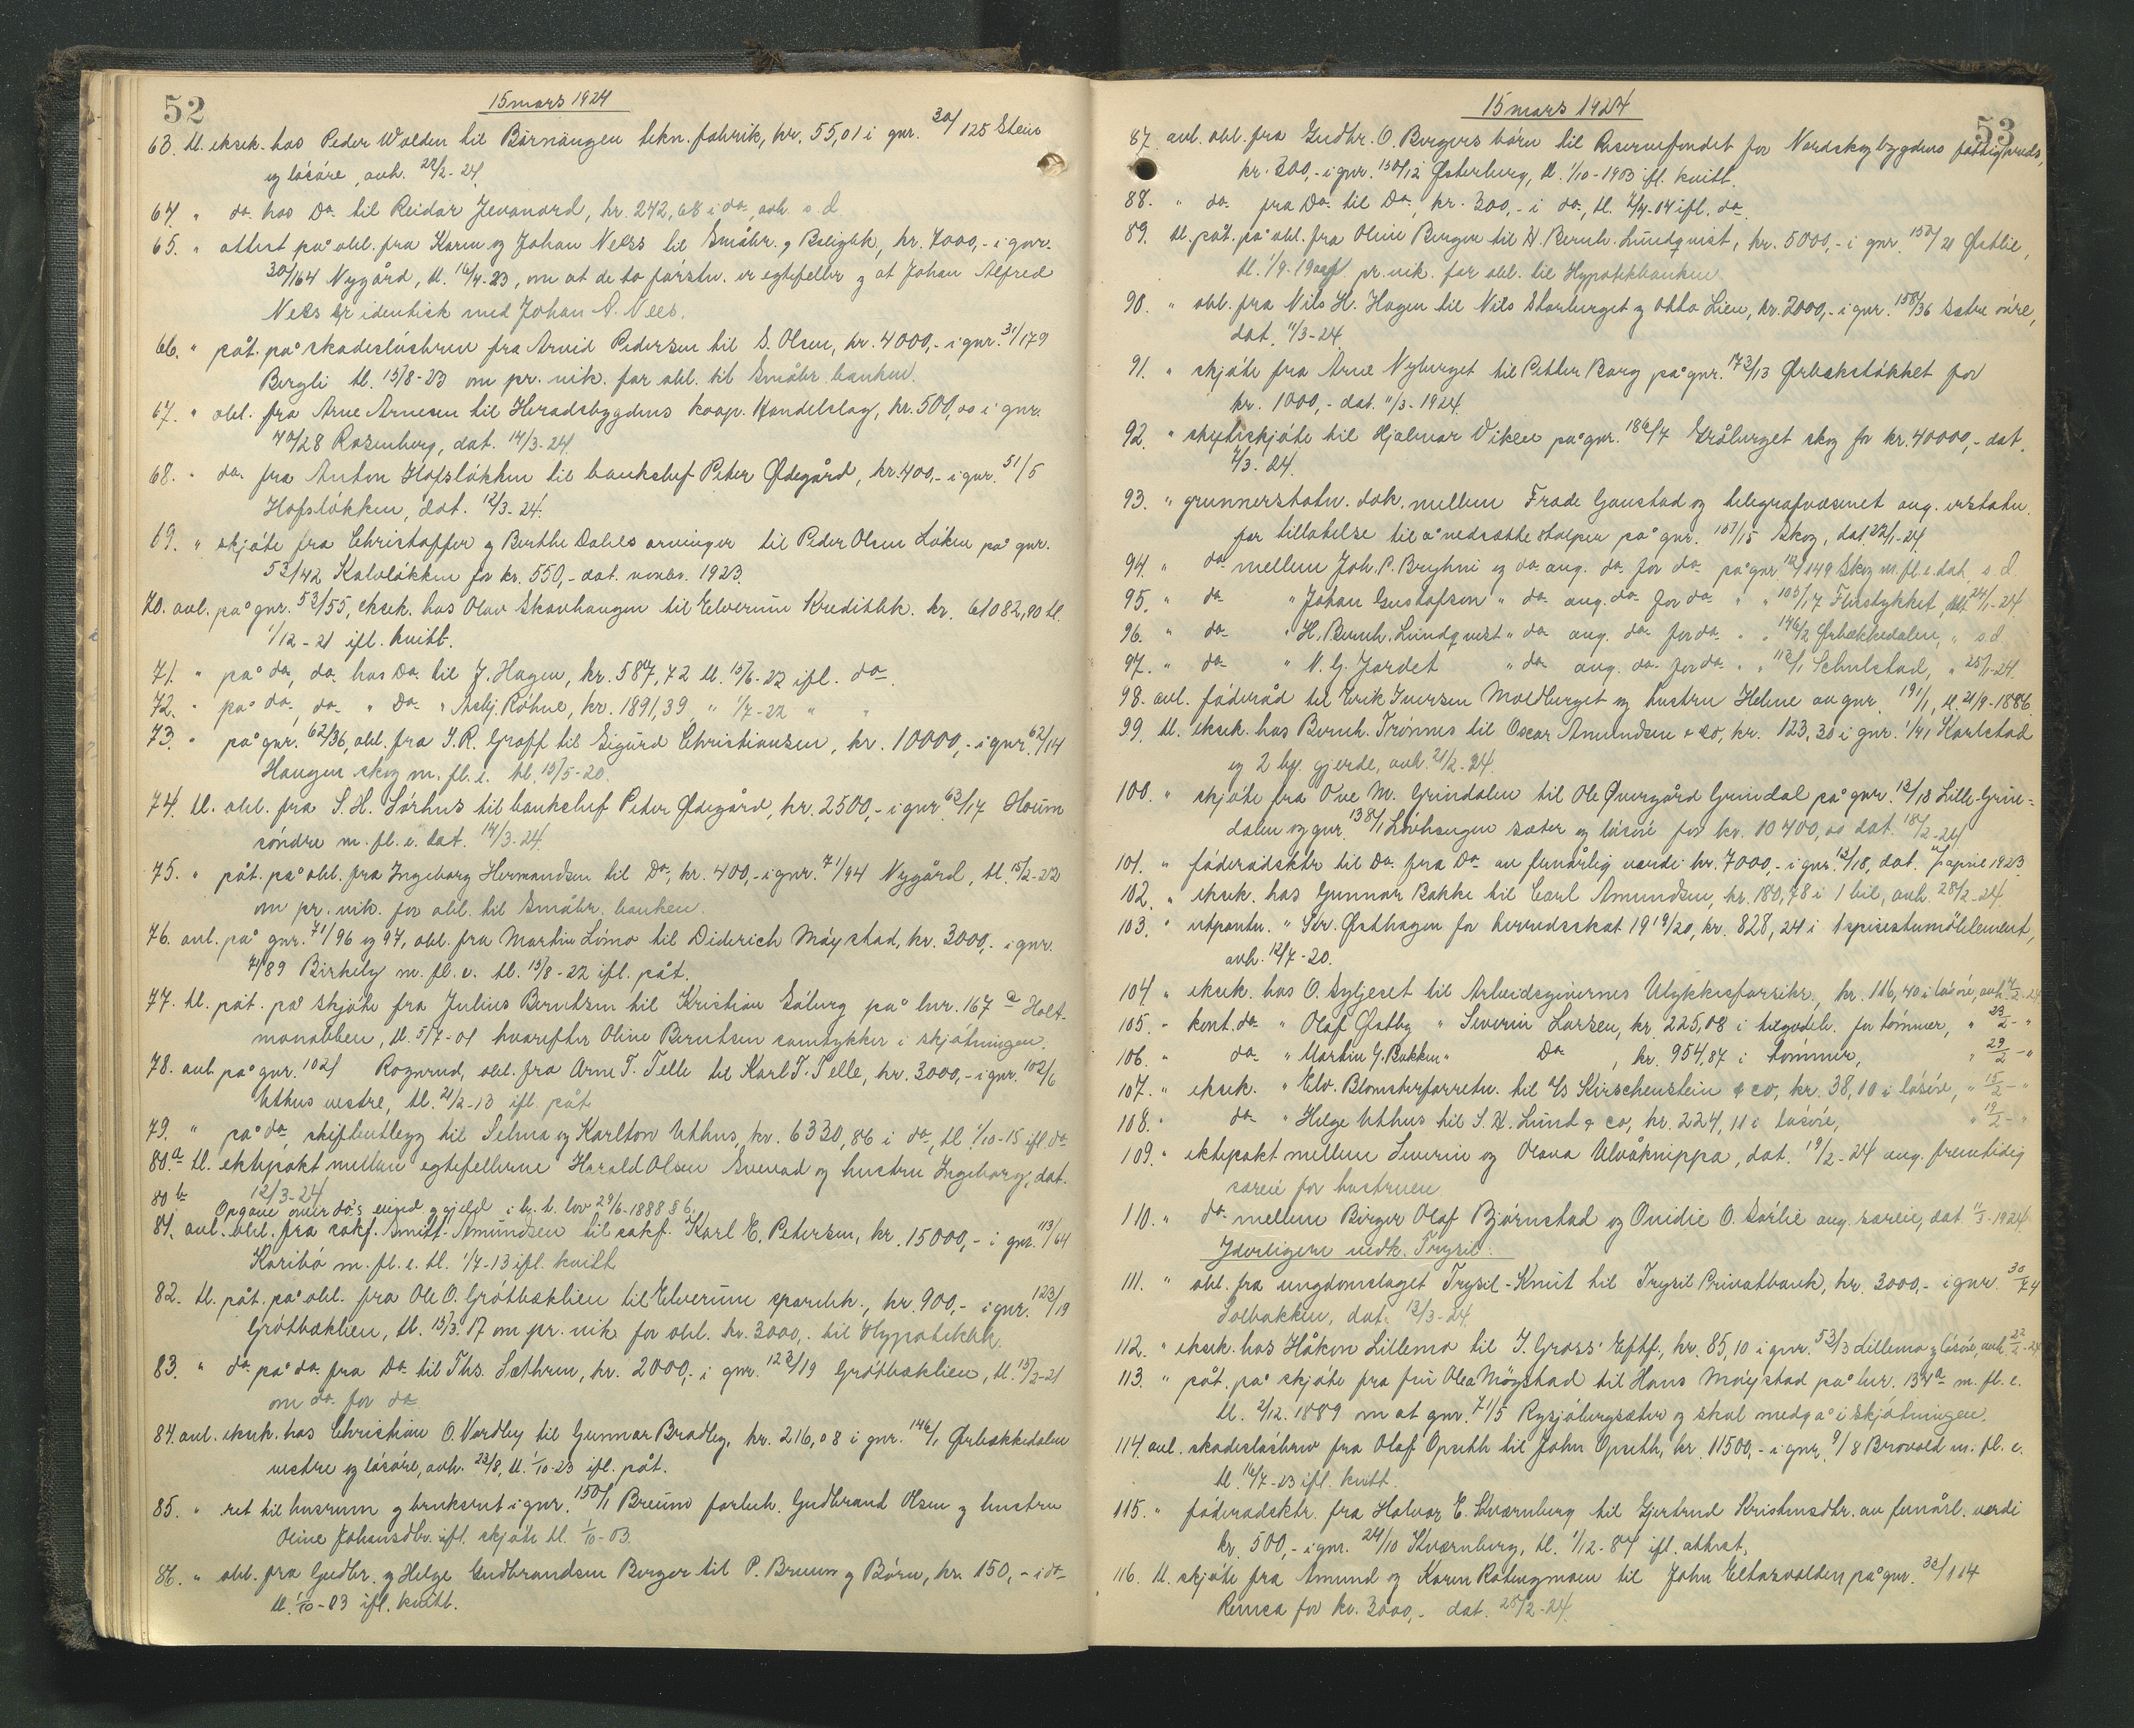 52
15 mars 1924
63. tl. eksek. hos Peder Wolden til Barnängen tekn. fabrik, kr. 55,01 i gnr. 30/125 Stein
og løsøre, avh. 22/2-24.
64. " do. hos Do. til Reidar Jevanord, kr. 242,68 i do., avh. s.d.
65. " attest på obl. fra Karen og Johan Nees til Småbr. og Boligbk, kr. 7000,- i gnr.
30/164 Nygård, tl. 16/4-23, om at de to førstn. er egtefeller og at Johan Alfred
Nees er identisk med Johan A. Nees.
66. " påt. på skadesløsbrev fra Arvid Pedersen til S. Olsen, kr. 4000,- i gnr. 31/179
Bergli tl. 15/8-23 om pr. vik. for obl. til Småbr. banken.
67. " obl. fra Arne Arnesen til Heradsbygdens koop. Handelslag, kr. 500,00 i gnr.
40/28 Rosenberg, dat. 14/3-24.
68. " do. fra Anton Hofsløkken til banksjef Peter Ødegård, kr. 400,- i gnr. 51/5
Hofsløkken, dat. 12/3-24.
69. " skjøte fra Christoffer og Berthe Dahls arvinger til Peder Olsen Løken på gnr.
53/42 Kalvløkken for kr. 550,- dat. novbr. 1923.
70. avl. på gnr. 53/55, eksek. hos Olav Skavhaugen til Elverum Kreditbk. kr. 61082,80 tl.
1/12-21 ifl. kvitt.
71. " på do., do. hos Do. til J. Hagen, kr. 580,72 tl. 15/6-22 ifl. do.
72. " på do., do. " Do. " Asbj. Røhne, kr. 1891,39, " 1/7-22 " "
73. " på gnr. 62/36, obl. fra I.R. Groff til Sigurd Christiansen, kr. 10000,- i gnr. 62/14
Haugen skog m. fl. e. tl. 15/5-20.
74. tl. obl. fra S.H. Sørhus til banksjef Peter Ødegård, kr. 2500,- i gnr. 63/17 Houm
søndre m. fl. e. dat. 14/3-24.
75. " påt. på obl. fra Ingeborg Hermandsen til Do., kr. 400,- i gnr. 71/94 Nygård, tl. 15/2-22
om pr. vik. for obl. til Småbr. banken.
76. avl. på gnr. 71/96 og 97, obl. fra Martin Limo til Diderich Møystad, kr. 3000,- i gnr.
71/89 Birkely m. fl. e. tl. 15/8-22 ifl. påt.
77. tl. påt. på skjøte fra Julius Berntsen til Kristian Søberg på lnr. 167 a Holt-
monabben, tl. 5/7-01 hvorefter Oline Berntsen samtykker i skjøtningen.
78. avl. på gnr. 102/ Rognrud, obl. fra Arne T. Telle til Karl T. Telle, kr. 3000,- i gnr. 102/6
Uthus vestre, tl. 21/2-13 ifl. påt
79. " på do., skifteutlegg til Selma og Karlton Uthus, kr. 6330,86 i do., tl. 1/10-15 ifl. do.
80.a tl. ektepakt mellem egtefellerne Harald Olsen Svenrad og hustru Ingeborg, dat.
12/3-24
80 b Opgave over do's eiend. og gjeld i h. t. lov 29/6-1888 § 6.
81. avl. obl. fra sakf. Smitt-Amundsen til sakf. Karl E. Petersen, kr. 15000,- i gnr. 113/64
Karibo m. fl. e. tl. 1/7-13 ifl. kvitt
82. tl. påt. på obl. fra Ole O. Grøtbæklien til Elverum sparebk., kr. 900,- i gnr. 123/19
Grøtbæklien, tl. 15/3.17 om pr. vik for obl. kr. 3000,- til Hypotekbk.
83. " do. på do. fra Do. til Ths. Sæthren, kr. 2000,- i gnr. 123/19 Grøtbæklien, tl. 15/2-21
om do. for do.
84. avl. eksek. hos Christian O. Nordby til Gunnar Bradley, kr. 216,08 i gnr. 146/1 Ørbækkedalen
vestre og løsøre, avh. 23/8, tl. 1/10-23 ifl. påt.
85. " ret til husrum og bruksret i gnr. 150/1 Breum forbeh. Gudbrand Olsen og hustru
Oline Johansdtr. ifl. skjøte tl. 1/10-03.
86. " obl. fra Gudbr. og Helge Gudbrandsen Berger til P. Bruun og Børn, kr. 150,- i do.
tl. 1/10-03 ifl. kvitt.
53
15 mars 1924
87. avl. obl. fra Gudbr. O. Bergers børn til Reservefondet for Nordskogbygdens fattigvæs,
kr. 200,- i gnr. 150/12 Østerberg, tl. 1/10-1903 ifl. kvitt.
88. " do. fra Do. til Do., kr. 300,- i do., tl. 2/4-04 ifl. do.
89. tl. påt. på obl. fra Oline Berger til H. Bernh. Lundquist, kr. 5000,- i gnr. 150/21 Østlie,
tl. 1/9-19 pr. vik. for obl. til Hypotekbanken
90. " obl. fra Nils H. Hagen til Nils Storberget og Otto Lien, kr. 2000,- i gnr. 158/36 Sætre øvre,
dat. 11/3-24
91. " skjøte fra Arne Nyberget til Petter Borg på gnr. 173/13 Ørbekstøkket for
kr. 1000,- dat. 11/3-1924.
92. " skifteskjøte til Hjalmar Viken på gnr. 186/7 Gråberget skog for kr. 40000,- dat.
7/3-24.
93. " grunnerstatn. dok. mellem Frode Gaustad og telegrafvæsenet ang. erstatn.
for tillatelse til å nedsætte stolper på gnr. 157/15 Skog, dat. 22/1-24
94. " do. mellem Joh. P. Bryhni og do. ang. do. for do. på gnr. 112/149 Skog m. fl. e. dat. s.d.
95. " do. " Johan Gustafson " do. ang. do. for do. " " 105/17 Flisstykket, dat. 24/1-24
96. " do. " H. Bernh. Lundquist " do. ang. do. for do. " " 146/2 Ørbækkedalen, " s.d.
97. " do. " N. G. Jordet " do. ang. do. for do. " " 113/1 Schulstad, " 25/1-24.
98. avl. føderåd til Erik Iversen Moldberget og hustru Helene av gnr. 191/1, tl. 21/9-1886.
99. tl. eksek. hos Bernh. Trønnes til Oscar Amundsen & Co, kr. 123,30 i gnr. 1/41 Karlstad
og 2 bgl. gjerde, avh. 21/2-24.
100. " skjøte fra Ove M. Grindalen til Ole Øvergård Grindal på gnr. 12/18 Lille-Grin-
dalen og gnr. 138/1 Løvhaugen sæter og løsøre for kr. 10400,00 dat. 18/2-24
101. " føderådsktr til Do. fra Do. av femårlig værdi kr. 7000,- i gnr. 12/18, dat. april 1923
102. " eksek. hos Gunnar Bakke til Carl Amundsen, kr. 180,78 i 1 bil, avh. 28/2-24.
103. " utpantn. " Gr. Østhagen for herredsskat 1919/20, kr. 828,24 i 1 spisestumøblement,
avh. 12/7-20.
104. " eksek. hos O. Syljeset til Arbeidsgivernes Ulykkesforsikr., kr. 116,40 i løsøre, avh. 14/2-24
105. " kont. do. " Olaf Østby " Severin Larsen, kr. 225,08 i tilgodeh. for tømmer, " 29/2-"
106. " do. " Martin G. Bakken " Do , kr. 954,87 i tømmer, " 29/2-"
107. " eksek. " Elv. Blomsterforretn. til A/S Kirschenstein & Co, kr. 38,10 i løsøre, " 15/2-"
108. " do. " Helge Uthus til S. H. Lund & Co, kr. 224,11 i løsøre, " 19/2-"
109. " ektepakt mellem Severin og Olava Ulvåknippa, dat. 19/2-24 ang. fremtidig
særeie for hustruen
110. " do. mellem Birger Olaf Bjørnstad og Ovidie O. Sørlie ang. særeie, dat. 11/3-1924
Yderligere vedk. Trysil.
111. " obl. fra ungdomslaget Trysil-Knut til Trysil Privatbank, kr. 3000,- i gnr. 30/74
Solbakken, dat. 12/3-24.
112. " eksek. hos Håkon Lillemo til I. Gross' Eftf., kr. 85,10 i gnr. 53/3 Lillemo og løsøre, avh. 22/2-24
113. " påt. på skjøte fra fru Olea Møystad til Hans Møystad på lnr. 134a m. fl. e.
tl. 2/12.1889 om at gnr. 71/5 Rysjøbergsæter og skal medgå i skjøtningen.
114. avl. skadesløsbrev fra Olaf Opseth til John Opseth, kr. 11500,- i gnr. 9/8 Brovold m. fl. e.
tl. 16/7-23 ifl. kvitt.
115. " føderadsktr. fra Halvor E. Kværnberg til Gjertrud Kristensdtr. av femårl. verdi
kr. 500,- i gnr. 24/10 Kværnberg, tl. 1/12-84 ifl. attest.
116. tl. skjøte fra Amund og Karen Rotbergmoen til John Eltarvolden på gnr. 32/114
Remsa for kr. 3000,- dat. 25/2-24.